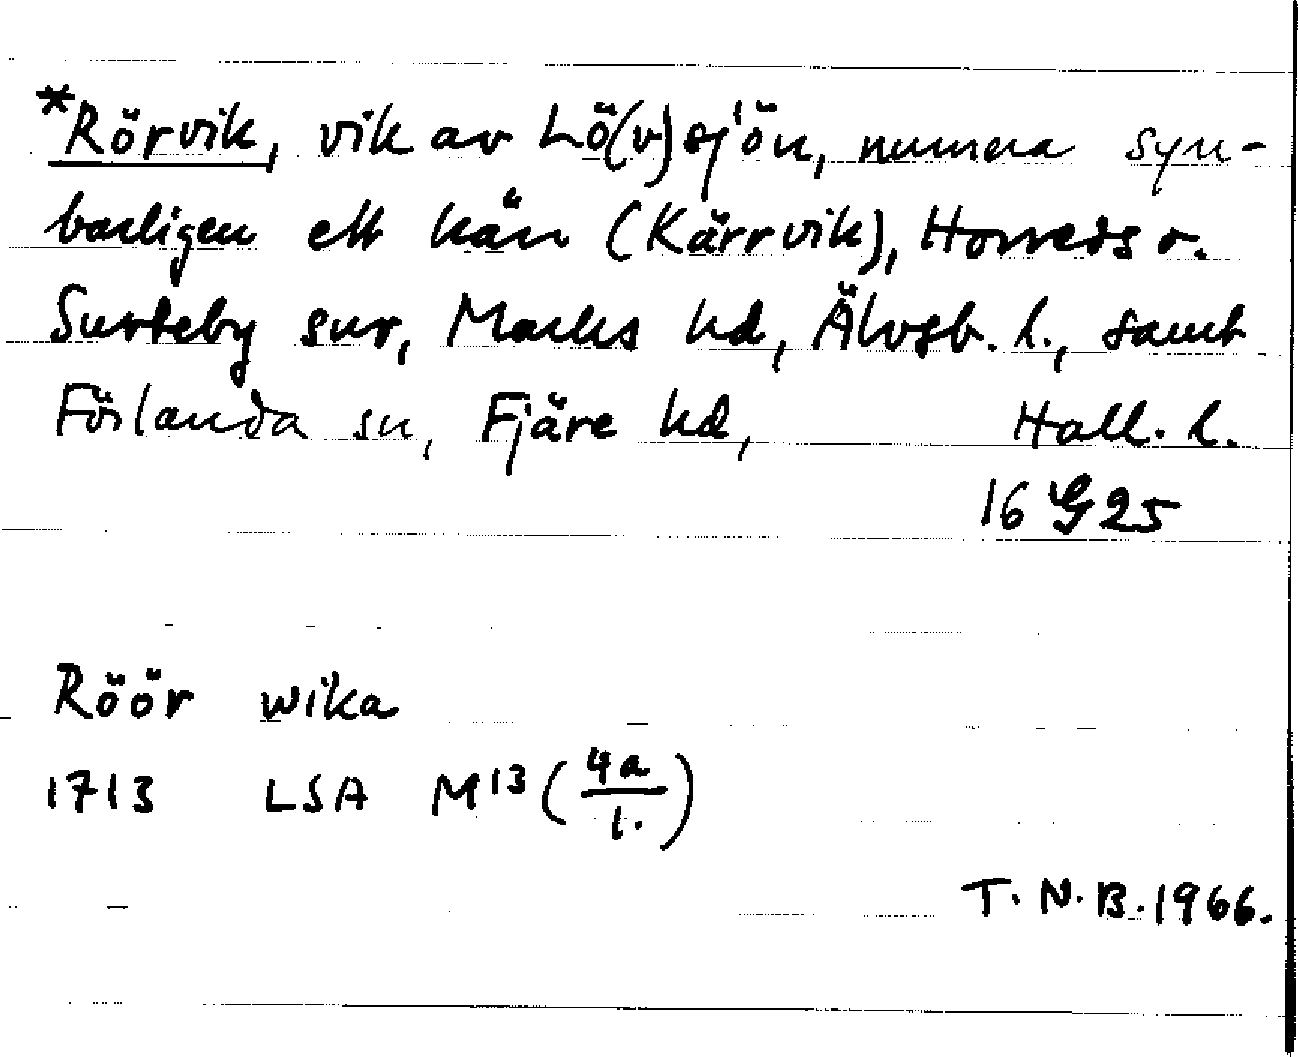 *Rörvik, vik av Lö(v)sjön, numera syn-
barligen ett kärr (Kärrvik), Horreds o.
Surteby snr, Marks hd, Älvsb. l., samt
Förlanda sn, Fjäre hd, Hall. l.
16 G 25
Röör wika
1713 LSA M13 (4a/1.)
T. N. B. 1966.